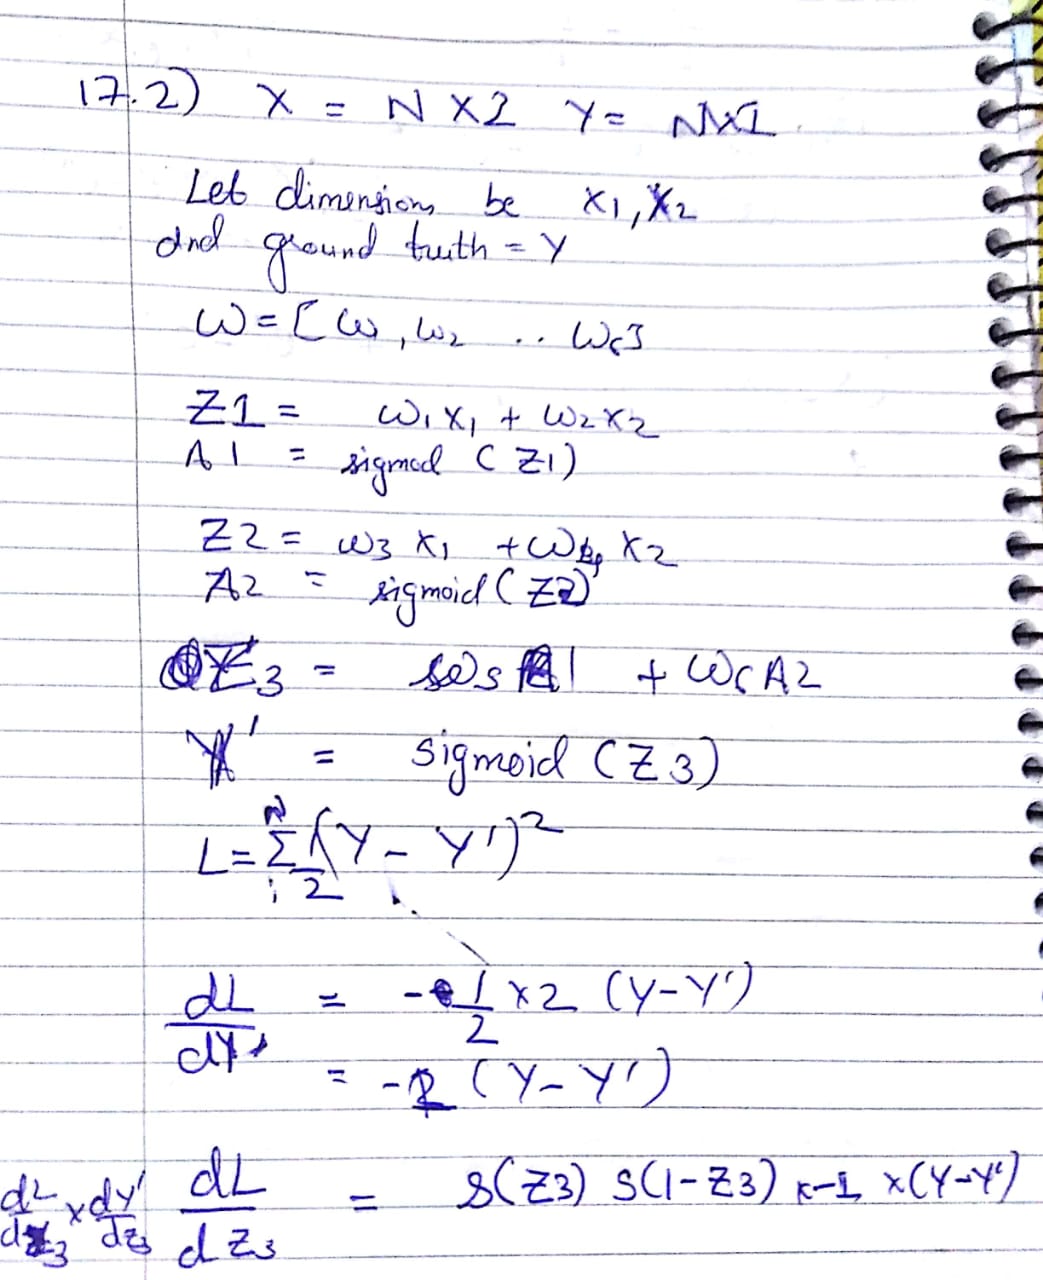 17.2) X = N X2 Y = NX1
Let dimensions be x1, x2
And ground truth = Y
W = [ W1, W2 .. W6]
Z1 = W1 X1 + W2 X2
A1 = sigmod (Z1)
Z2 = W3 X1 + W4 X2
A2 = sigmoid (Z2)
Z3 = W5 A1 + W6 A2
Y' = sigmoid (Z3)
L = N Σ i 1/2 (Y - Y')2
dL/dY' = - 1/2 x2 (Y-Y')
= -1 (Y-Y')
dL/dZ3 x dY'/dZ3 dL/dZ3 = S(Z3) S(1-Z3) x-1 x(Y-Y')